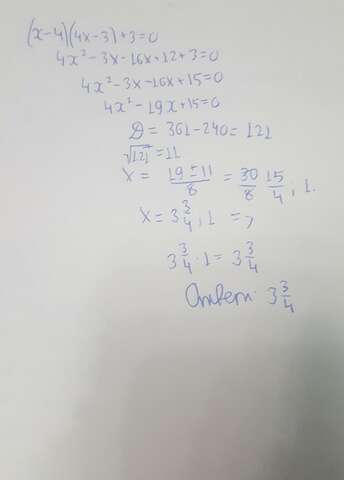 (x-4)(4x-3)+3=0
4x²-3x-16x+12+3=0
4x²-3x-16x+15=0
4x²-19x+15=0
D=361-240=121
√121=11
x= 19±11/8 = 30/8 15/4, 1.
x=3 3/4, 1 =>
3 3/4 · 1 = 3 3/4
Ответ: 3 3/4